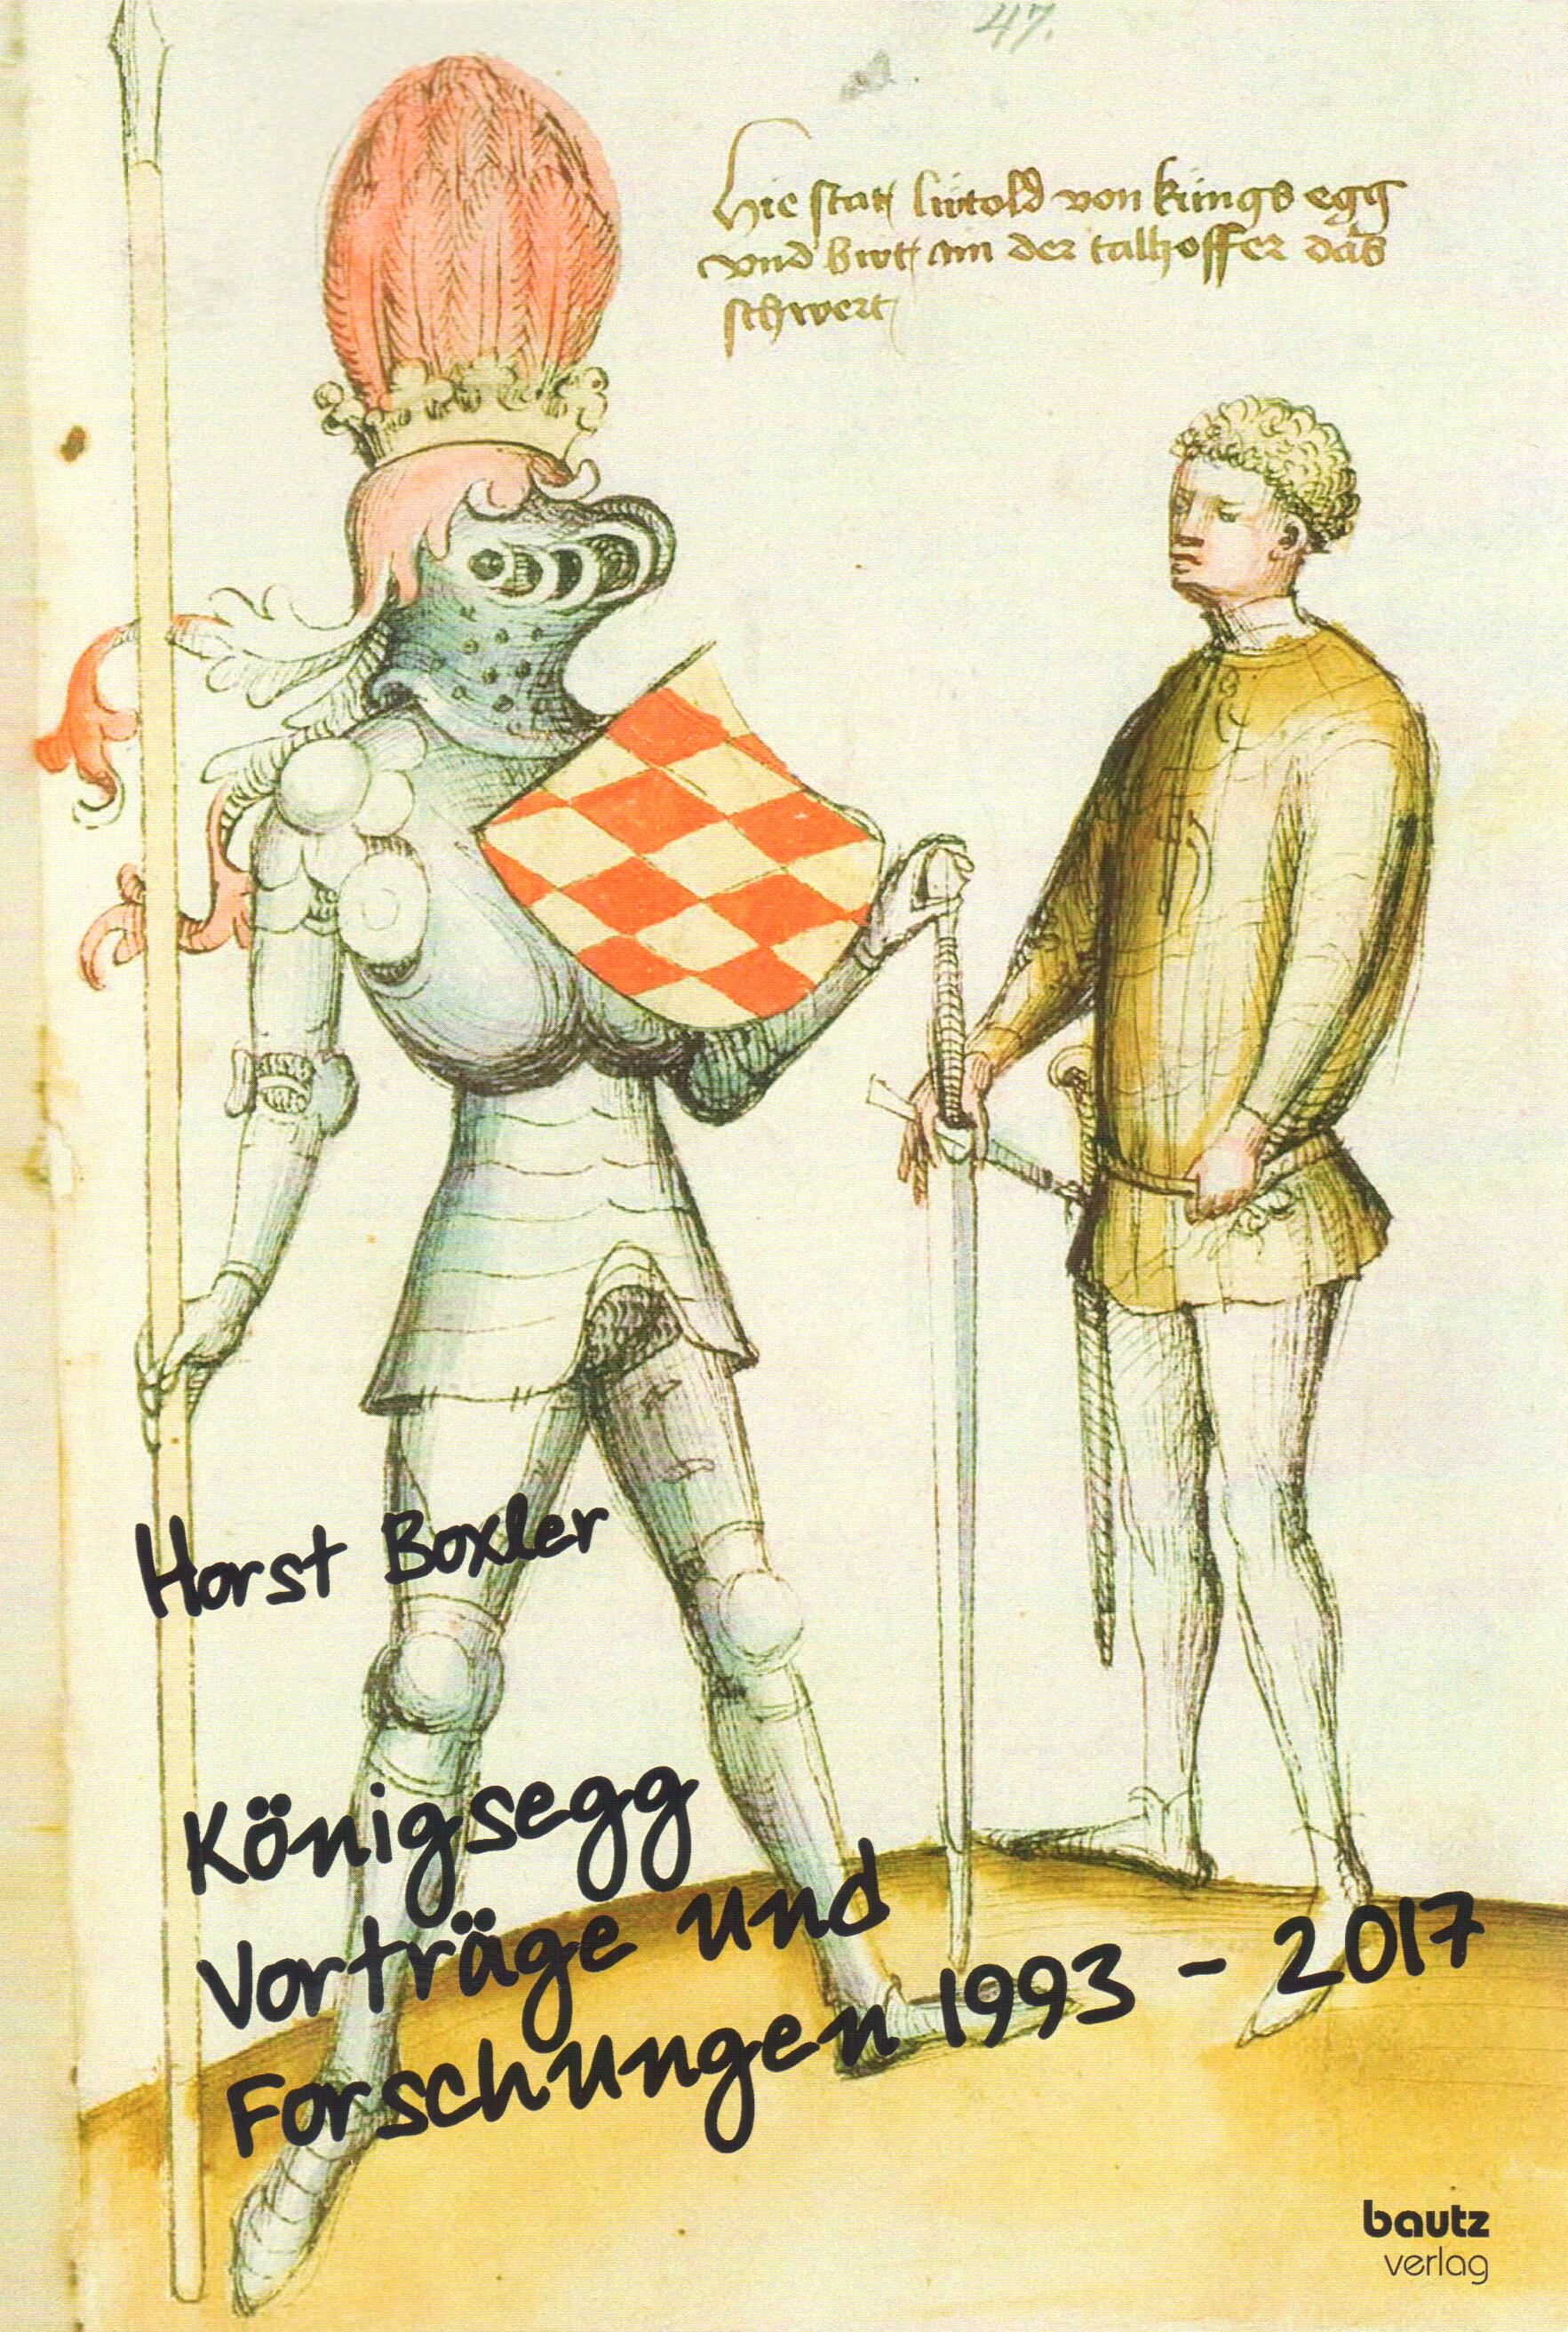 47.
hie statt lütold von küngs egg
vnd bütt im der talhoffer das
schwert
Horst Boxler
Königsegg
Vorträge und
Forschungen 1993 - 2017
bautz
verlag